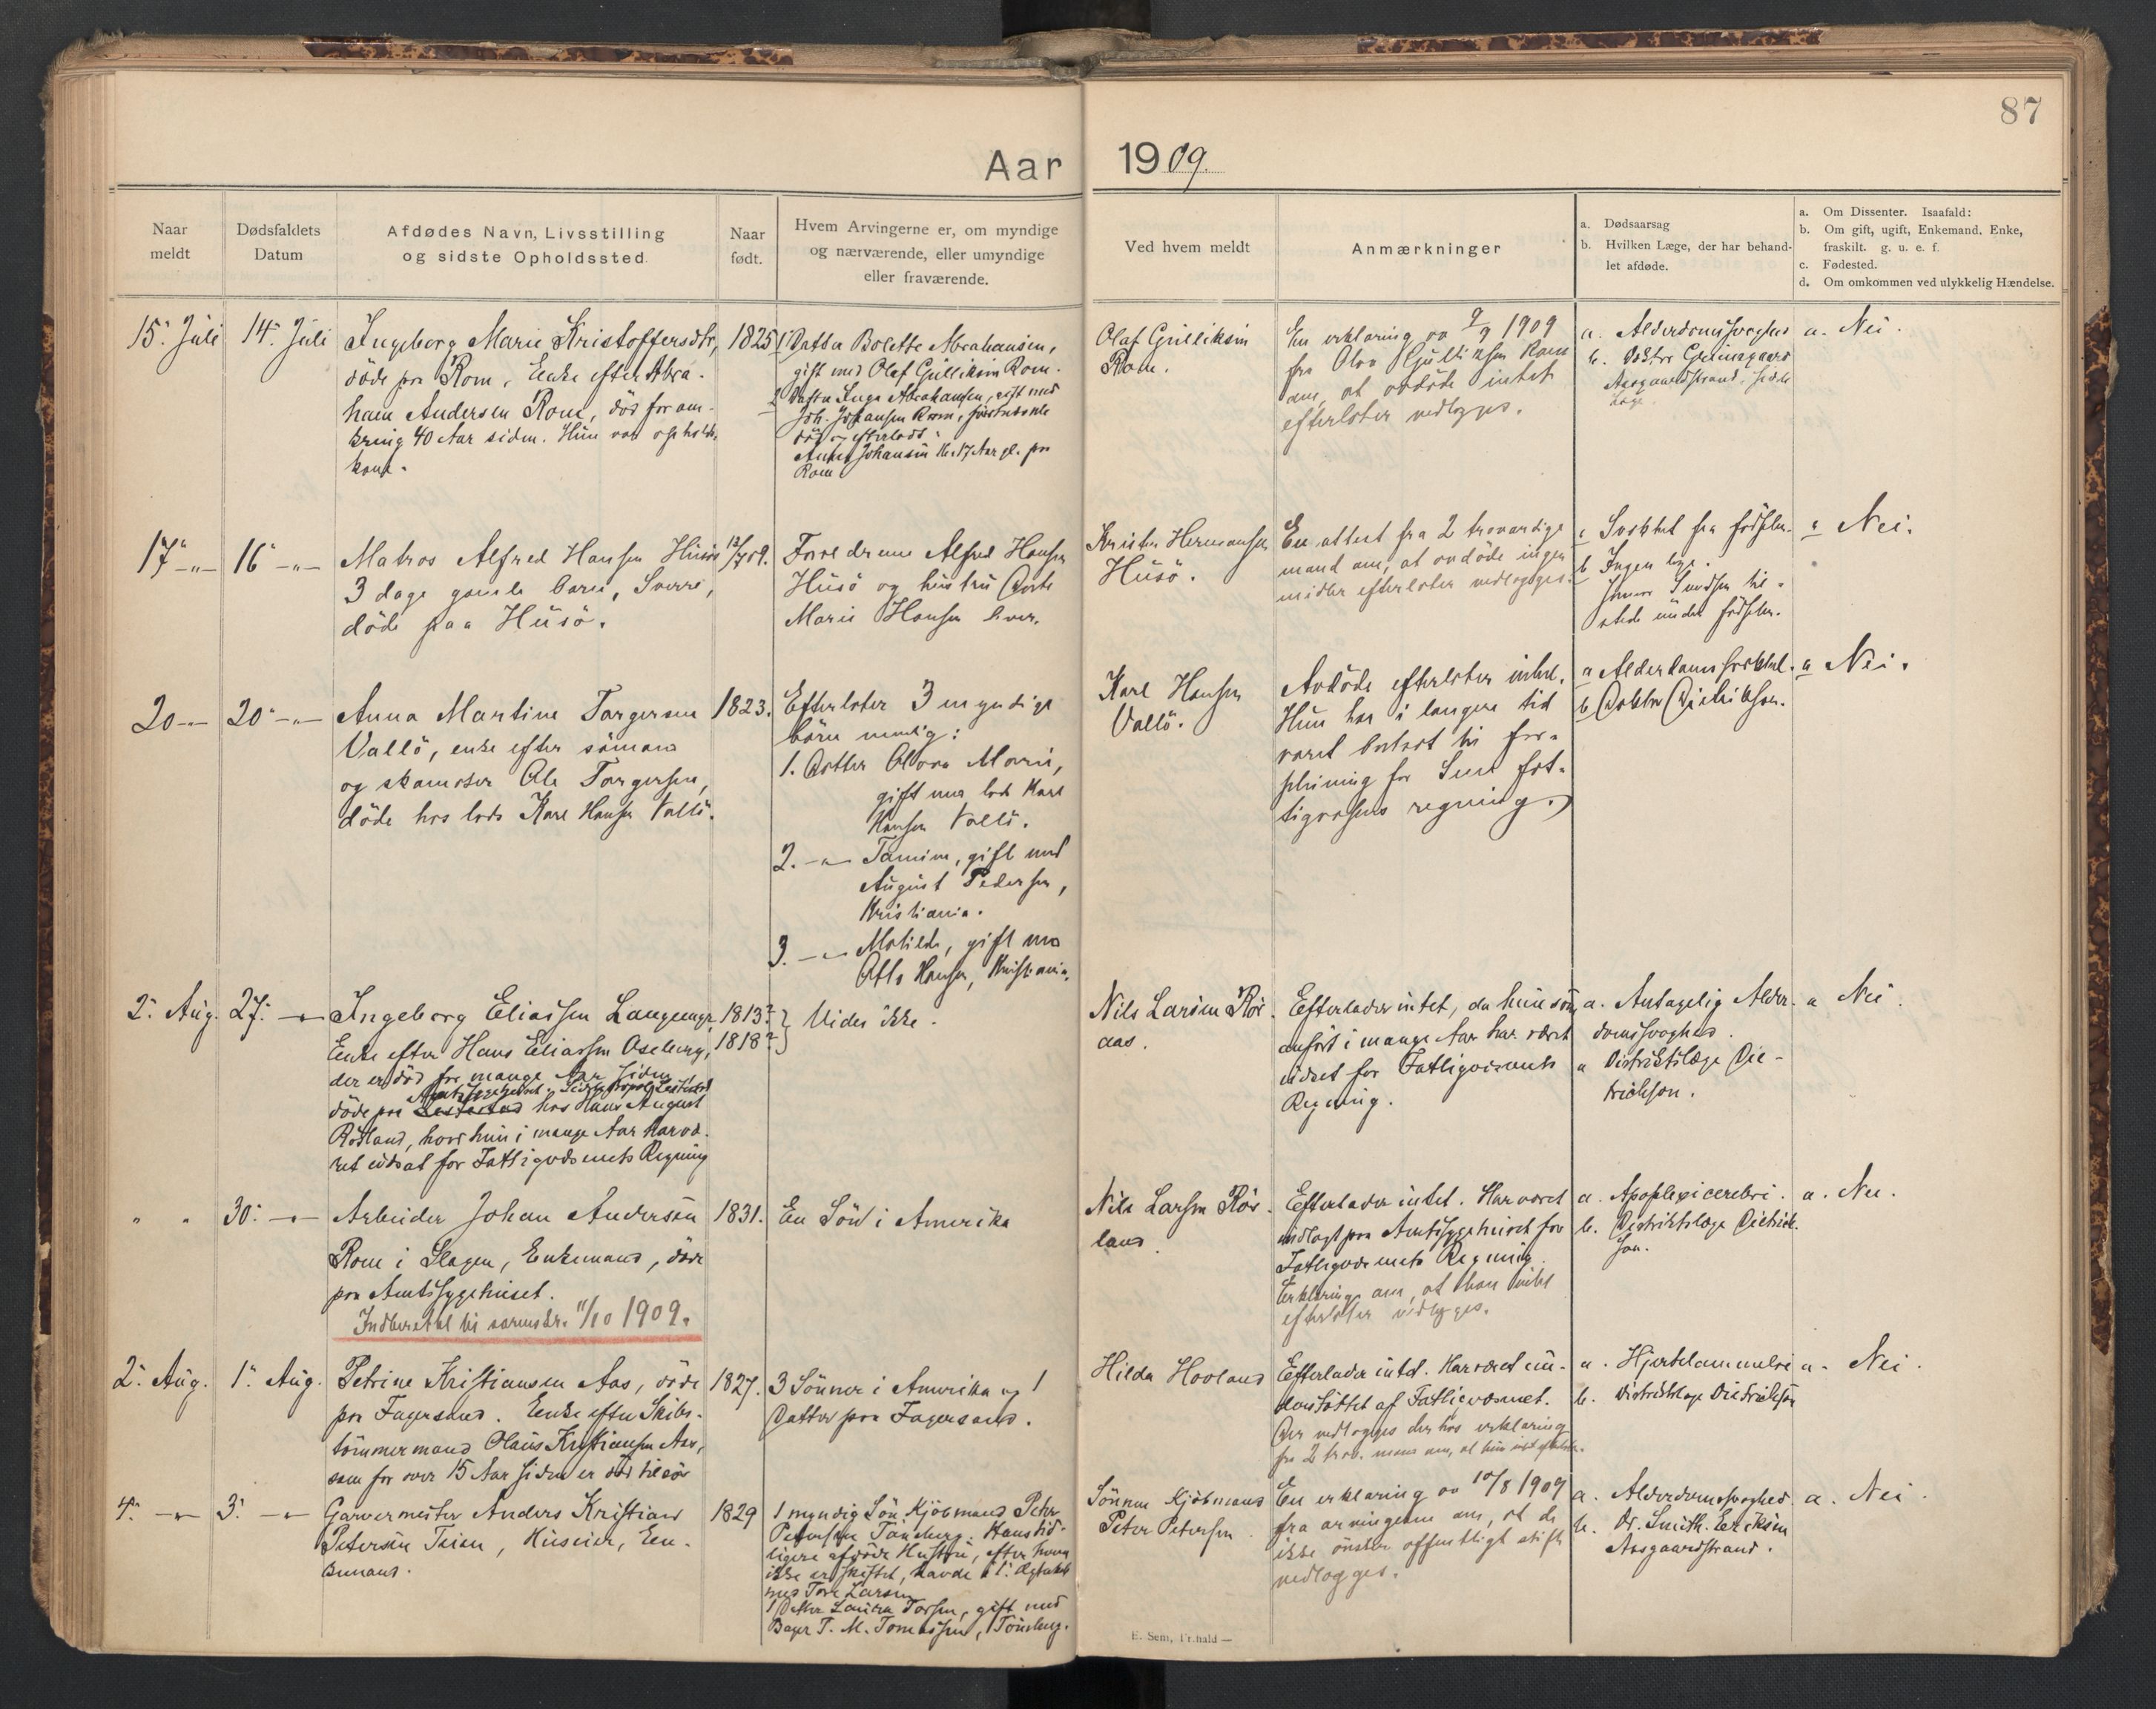 87
Aar 1909.
Naar meldt
Dødsfaldets Datum
Afdødes Navn, Livsstilling og sidste Opholdssted
Naar født.
Hvem Arvingerne er, om myndige og nærværende, eller umyndige eller fraværende.
Ved hvem meldt
Anmærkninger
a. Dødsaarsag
b. Hvilken Læge, der har behandlet afdøde.
a. Om Dissenter. Isaafald:
b. Om gift, ugift, Enkemand, Enke, fraskilt. g. u. e. f.
c. Fødested.
d. Om omkommen ved ulykkelig Hændelse.
15. Juli
14. Juli
Ingeborg Marie Kristoffersdtr,
döde paa Rom, Enke efter Abra-
ham Andersen Rom, död for om-
kring 40 Aar siden. Hun var opholds-
kone.
1825
1 Datter Bolette Abrahamsen,
gift med Olaf Gulliksen Rom.
2 Datter Inga Abrahamsen, gift med
Joh. Johansen Rom, sidstnævnte
död og efterladt:
Anna Johansen 16-17 Aar gl. paa
Rom
Olaf Gulliksen
Rom.
En erklæring av 9/9 1909
fra Olav Gulliksen Rom
om, at avdöde intet
efterlater vedlægges.
a. Alderdomssvaghed
b. Doktor Grimsgaard
Aasgaardstrand, sidste
Læge.
a. Nei.
17 -"-
16 -"-
Matros Alfred Hansen Husö
3 dage gamle barn, Sverre,
döde paa Husö.
13/7 09.
Forældrene Alfred Hansen
Husö og hustru Dorte
Marie Hansen lever.
Kristen Hermansen
Husö.
En attest fra 2 troværdige
mænd om, at avdöde ingen
midler efterlater vedlægges.
a Svakhet fra födselen.
b Ingen læge.
Jomor Knudsen til-
stede under födselen.
a Nei.
20 -"-
20 -"-
Anna Martine Torgersen
Vallö, enke efter sömand
og skomaker Ole Torgersen,
döde hos lods Karl Hansen Vallö.
1823.
Efterlater 3 myndige
börn nemlig:
1. Datter Olava Marie,
gift med lods Karl
Hansen Vallö.
2. -"- Tomine, gift med
August Pedersen,
Kristiania.
3. -"- Matilde, gift med
Otto Hansen, Kristiania.
Karl Hansen
Vallö.
Avdöde efterlater intet.
Hun har i længere tid
været bortsat til for-
pleining for Sem fat-
tigvæsens regning.
a Alderdomssvakhet.
b Doktor Dietrichson.
a Nei.
2. Aug.
27. -"-
Ingeborg Eliassen Langeng,
Enke efter Hans Eliassen Oseberg,
der er död for mange Aar siden,
döde paa hos Hans August
Rörland, hvor hun i mange Aar har væ-
ret udsat for Fattigvæsenets Regning
1813?
1818?
Vides ikke.
Nils Larsen Rör-
aas.
Efterlader intet, da hun som
anfört i mange Aar har været
udsat for Fattigvæsenets
Regning.
a. Antagelig Alder-
domssvaghed.
a Distriktslæge Die-
trichson.
a Nei.
" "
30. -"-
Arbeider Johan Andersen
Rom i Slagen, Enkemand, döde
paa Amtssygehuset.
Indberettet til sorenskr. 11/10 1909.
1831.
En Sön i Amerika
Nils Larsen Rör-
land.
Efterlader intet. Har været
indlagt paa Amtssygehuset for
Fattigvæsenets Regning.
Erklæring om, at han intet
efterlater vedlægges.
a. Apoplexi cerebri.
b. Distriktslæge Dietrich-
son.
a. Nei.
2. Aug.
1. Aug.
Petrine Kristiansen Aas, döde
paa Fagersand. Enke efter Skibs-
tömmermand Olaus Kristiansen Aas,
som for over 15 Aar siden er död tilsös
1827.
3 Sönner i Amerika og 1
Datter paa Fagersand.
Hilda Hovland
Efterlader intet. Har været un-
derstöttet af Fattigvæsenet.
Der vedlægges derhos erklæring
fra 2 trov. mænd om, at hun intet efterlater.
a. Hjertelammelse
b. Distriktslæge Dietrichson
a. Nei.
4. -"-
3. -"-
Garvermester Anders Kristian
Petersen Teien, Husеier, En-
kemand.
1829
1 myndig Sön Kjöbmand Peter
Petersen Tönsberg. Hans tid-
ligere afdöde Hustru, efter hvem
ikke er skiftet, havde i 1. Ægteskab
med Tore Larsen
1 Datter Laura Torsen, gift med
Bager T. M. Tomassen, Tönsberg.
Sönnen Kjöbmand
Peter Petersen.
En erklæring av 10/8 1909
fra arvingerne om, at de
ikke önsker offentligt skifte
vedlægges.
a. Alderdomssvaghed.
b. Dr. Smith-Eriksen
Aasgaardstrand.
a. Nei.
E. Sem, Fr.hald —